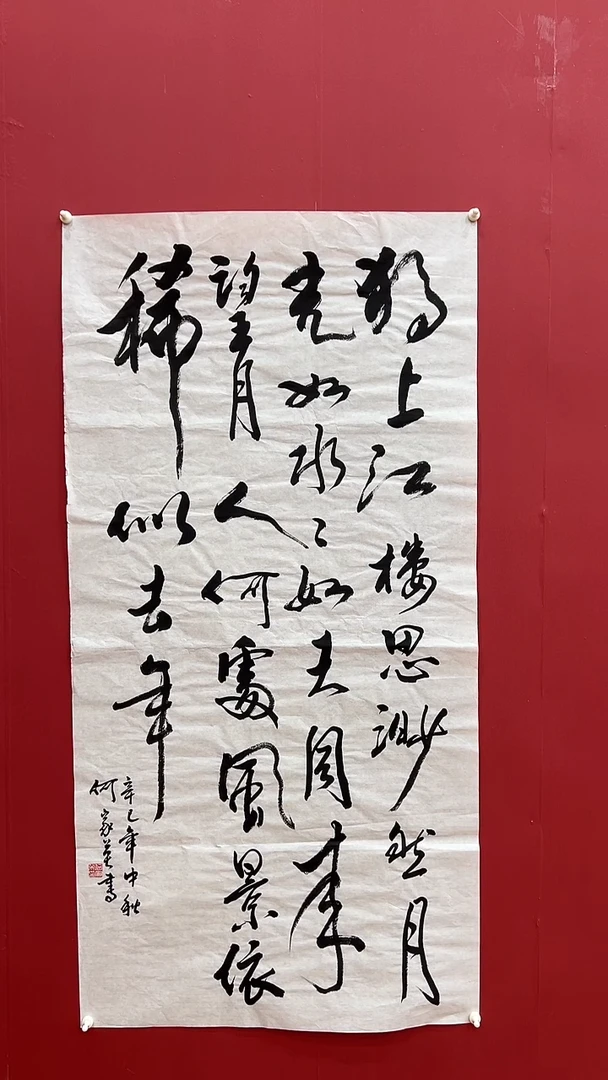 獨上江樓思渺然月
光如水〻如天同來
望月人何處風景依
稀似去年
辛巳年中秋
何家英書